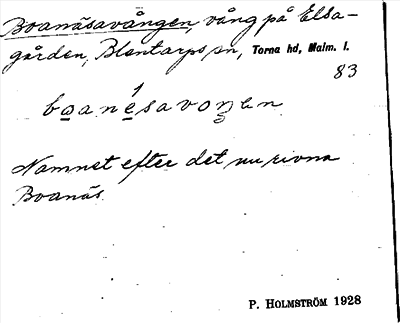 Boanäsavången, vång på Elsa-
gården, Blentarps sn, Torna hd, Malm. l.
83
boanesavoŋen
Namnet efter det nu rivna
Boanäs.
P. HOLMSTRÖM 1928